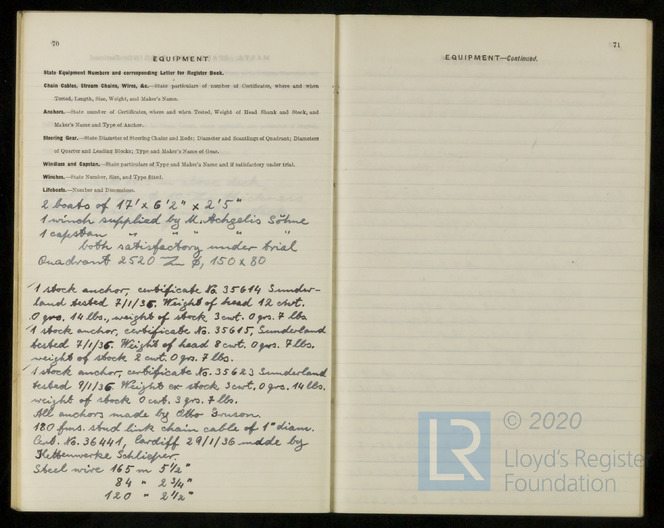 70
EQUIPMENT
State Equipment Numbers and corresponding Letter for Register Book.
Chain Cables, Stream Chains, Wires, &c.—State particulars of number of Certificates, where and when
Tested, Length, Size, Weight, and Maker's Name.
Anchors.—State number of Certificates, where and when Tested, Weight of Head Shank and Stock, and
Maker's Name and Type of Anchor.
Steering Gear.—State Diameter of Steering Chains and Rods; Diameter and Scantlings of Quadrant; Diameters
of Quarter and Leading Blocks; Type and Maker's Name of Gear.
Windlass and Capstan.—State particulars of Type and Maker's Name and if satisfactory under trial.
Winches.—State Number, Size, and Type fitted.
Lifeboats.—Number and Dimensions.
2 boats of 17' x 6'2" x 2'5"
1 winch supplied by M. Achgelis Söhne
1 capstan " " " " "
both satisfactory under trial
Quadrant 2520 φ, 150 x 80
1 stock anchor, certificate No. 35614 Sunder-
land tested 7/1/36. Weight of head 12 cwt.
0 qrs. 14 lbs., weight of stock 3 cwt. 0 qrs. 7 lbs
1 stock anchor, certificate No. 35615, Sunderland
tested 7/1/36. Weight of head 8 cwt. 0 qrs. 7 lbs.
weight of stock 2 cwt. 0 qrs. 7 lbs.
1 stock anchor, certificate No. 35623 Sunderland
tested 9/1/36 Weight ex stock 3 cwt. 0 qrs. 14 lbs.
weight of stock 0 cwt. 3 qrs. 7 lbs.
All anchors made by Otto
180 fms. stud link chain cable of 1" diam.
Cert. No. 36441, Cardiff 29/1/36 made by
Kettenwerke Schlieper.
Steel wire 165 m 5 1/2"
84 " 2 3/4"
120 " 2 1/2"
71
EQUIPMENT—Continued.
LR
© 2020
Lloyd's Register
Foundation